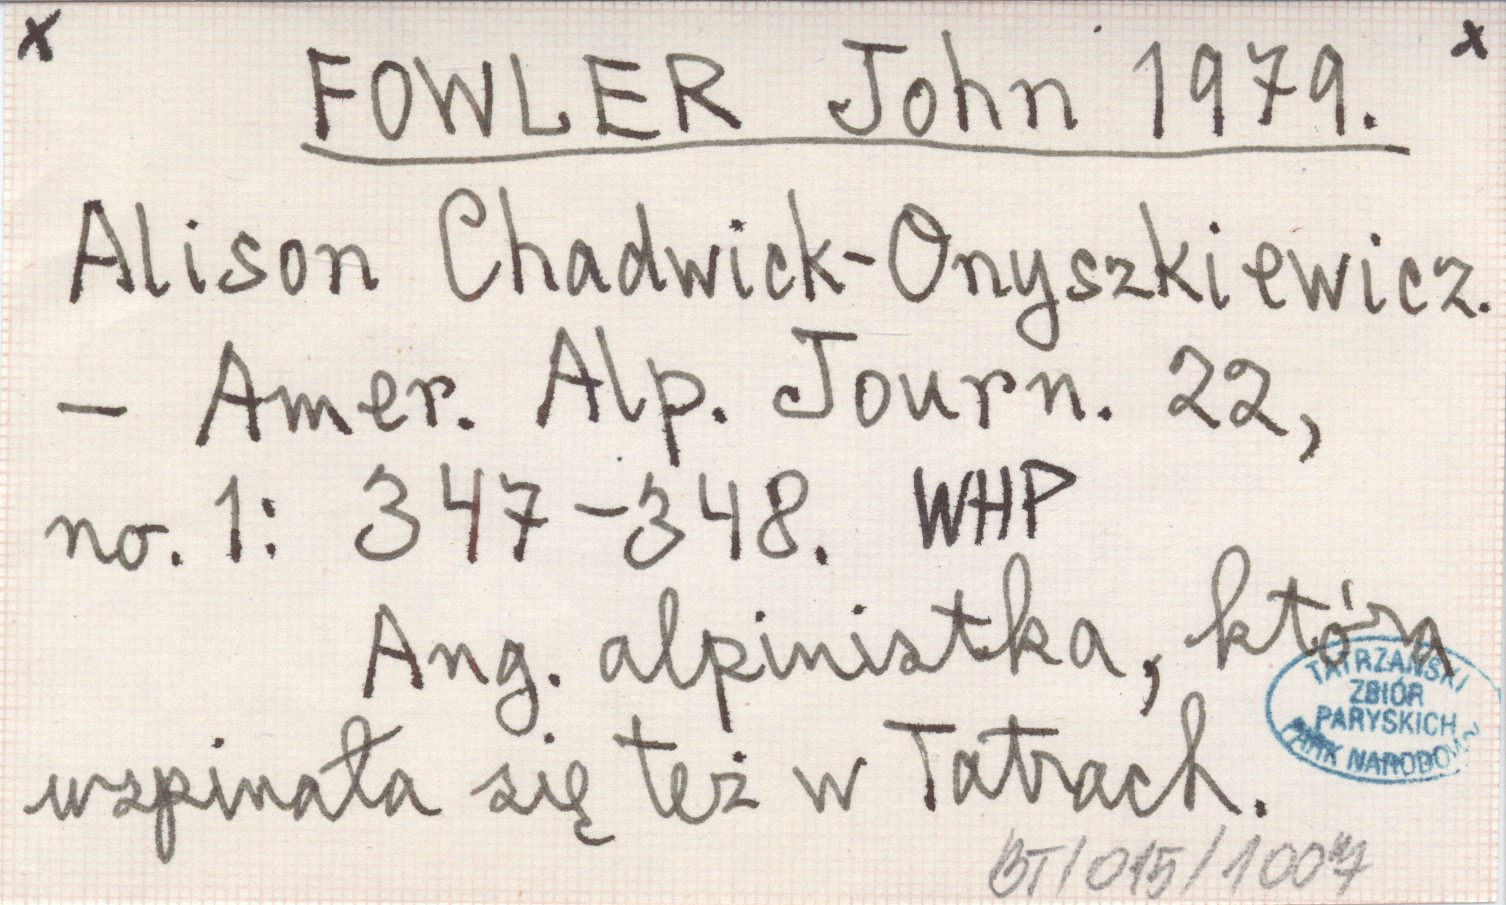 x x
FOWLER John 1979.
Alison Chadwick-Onyszkiewicz.
– Amer. Alp. Journ. 22,
no. 1: 347-348. WHP
Ang. alpinistka, która
wspinała się też w Tatrach.
TATRZAŃSKI
ZBIÓR
PARYSKICH
PARK NARODOWY
BT/015/1007